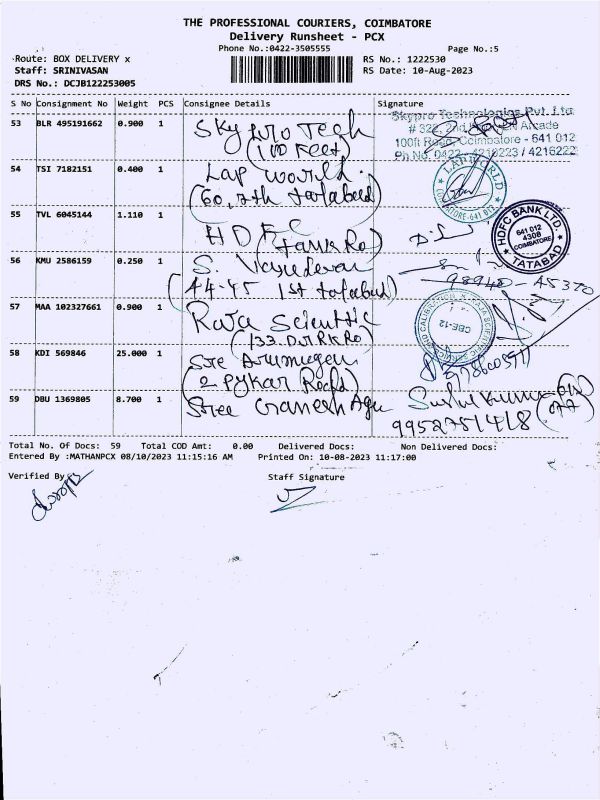 THE PROFESSIONAL COURIERS, COIMBATORE
Delivery Runsheet - PCX
Phone No.:0422-3505555 Page No.:5
Route: BOX DELIVERY x RS No.: 1222530
Staff: SRINIVASAN RS Date: 10-Aug-2023
DRS No.: DCJB122253005
S No Consignment No Weight PCS Consignee Details Signature
53 BLR 495191662 0.900 1 Sky pro Tech
(100 Feet)
Skypro Technologies Pvt. Ltd
100ft Road, Coimbatore - 641 012
Ph No. 0422 - 4218223 / 4216222
54 TSI 7182151 0.400 1 Lap world.
(60, 7th tatabad)
LAP WORLD
COIMBATORE-641 012
55 TVL 6045144 1.110 1 HDFC
HDFC BANK LTD.
641 012
4308
COIMBATORE
TATABAD
56 KMU 2586159 0.250 1 S. Vasudevan
(44-45 1st tatabad)
98940-45370
57 MAA 102327661 0.900 1 Raja Scientific
CBE-12
58 KDI 569846 25.000 1 Sree Arumugan
59 DBU 1369805 8.700 1 Sree Ganesh
9952751418
Total No. Of Docs: 59 Total COD Amt: 0.00 Delivered Docs: Non Delivered Docs:
Entered By :MATHANPCX 08/10/2023 11:15:16 AM Printed On: 10-08-2023 11:17:00
Verified By Staff Signature